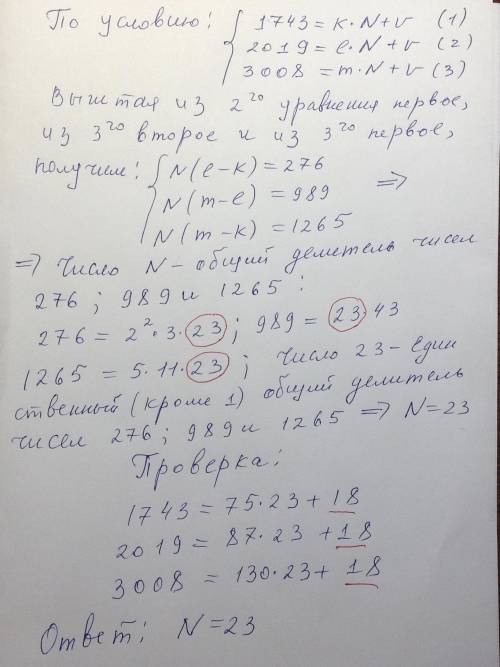 По условию: { 1743 = k·N+v (1)
2019 = l·N+v (2)
3008 = m·N+v (3)
Вычитая из 2го уравнения первое,
из 3го второе и из 3го первое,
получим: { N(l-k) = 276
N(m-l) = 989 =>
N(m-k) = 1265
=> Число N - общий делитель чисел
276; 989 и 1265:
276 = 2²·3·23; 989 = 23·43
1265 = 5·11·23; Число 23 - един
ственный (кроме 1) общий делитель
чисел 276; 989 и 1265 => N=23
Проверка:
1743 = 75·23 + 18
2019 = 87·23 + 18
3008 = 130·23 + 18
Ответ: N = 23